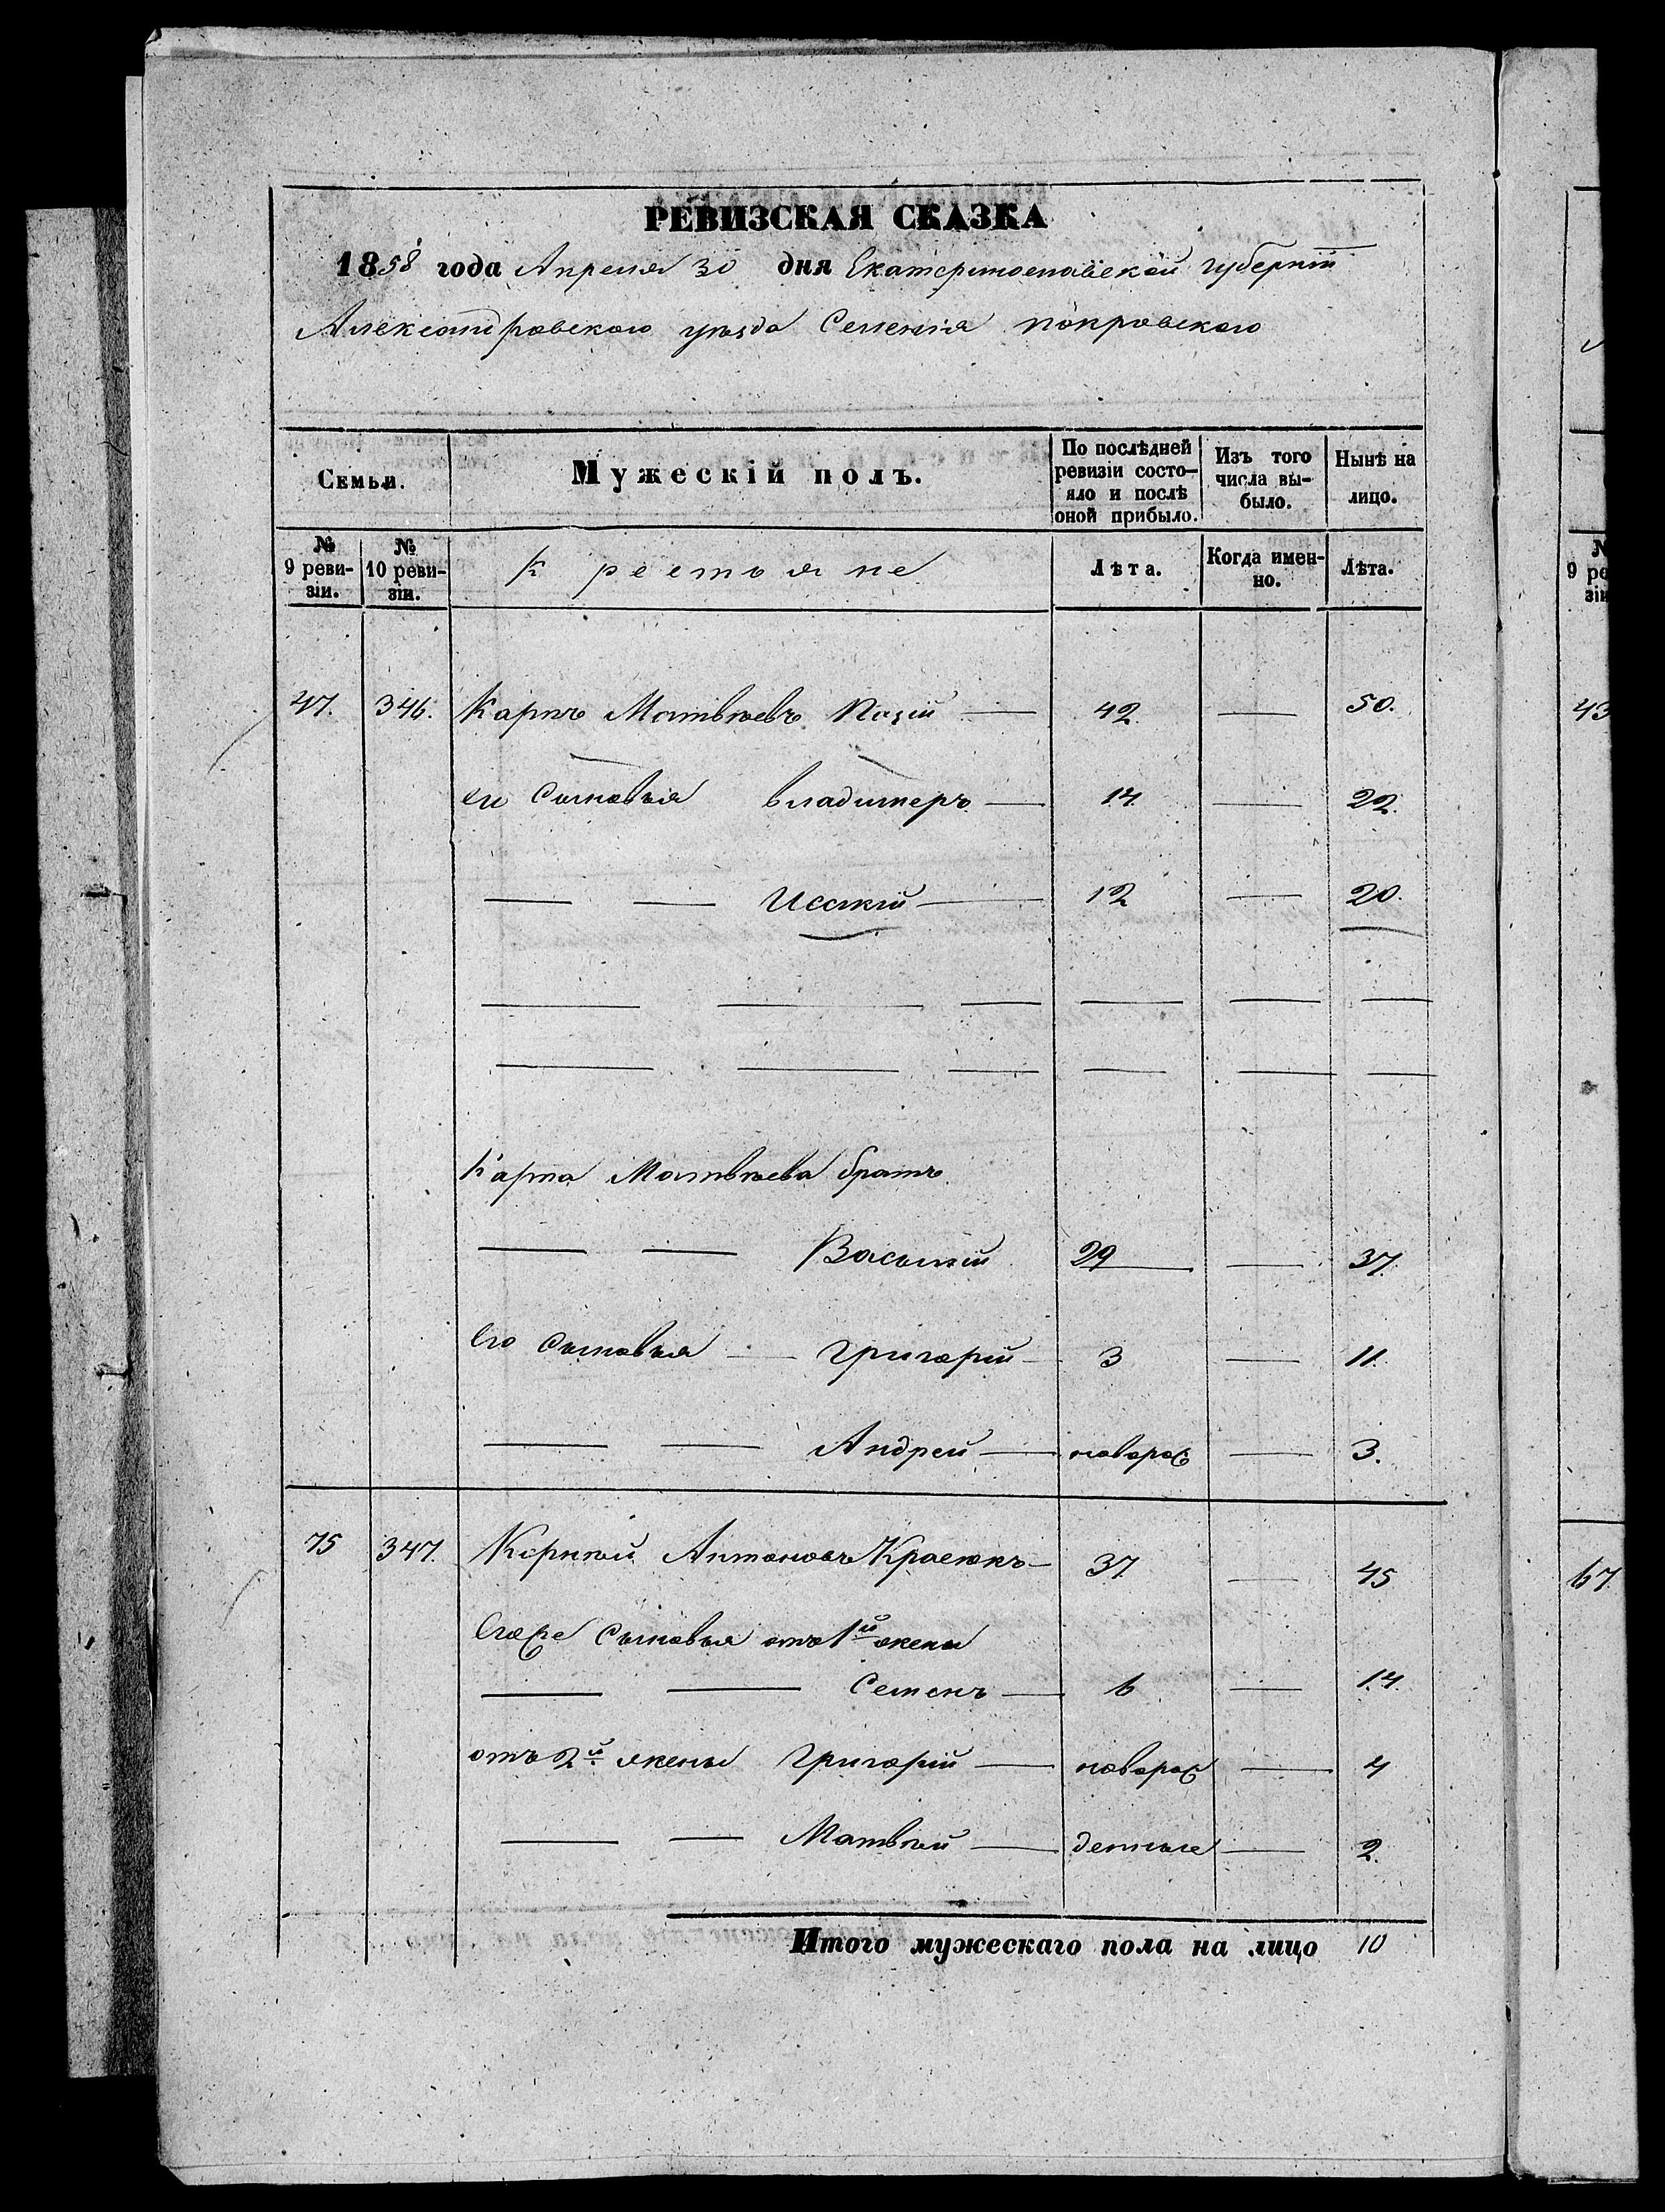 РЕВИЗСКАЯ СКАЗКА
1858 года Апреля 30 дня Екатеринославской губерніи
Александровского уѣзда Селенія покровского
Семьи.
Мужескій полъ.
По послѣдней ревизіи состояло и послѣ оной прибыло.
Изъ того числа выбыло.
Нынѣ на лицо.
№ 9 ревизіи.
№ 10 ревизіи.
Крестьяне
Лѣта.
Когда именно.
Лѣта.
47. 346. Карпъ Матвѣевъ — 42 — 50.
его Сыновья владимеръ — 14 — 22.
— — — 12 — 20.
Карпа Матвѣева братъ
— — Василій 29 — 37.
его Сыновья — григорій — 3 — 11.
— — Андрей — новорож — 3.
75 347. Корнѣй Антоновъ — 37 — 45
Егоже Сыновья отъ 1й жены
— — Семенъ — 6 — 14.
отъ 2й жены григорій — новорож — 4
— — Матвѣй — — 2.
Итого мужескаго пола на лицо 10
N
9 ре
зіи
43
67.